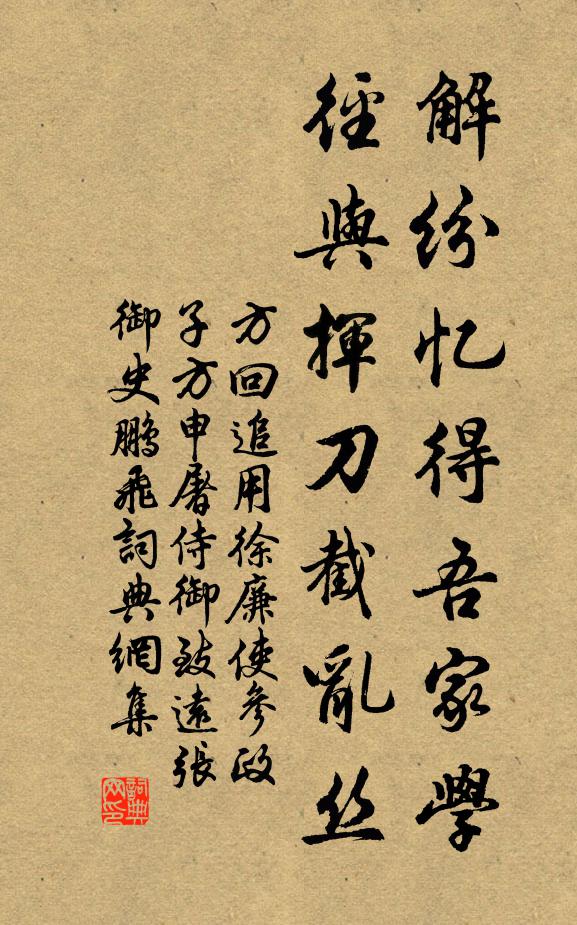 解紛忆得吾家學
徑與揮刀截亂丝
方回追用徐廉使參政
子方申屠侍御致遠張
御史鵬飛詞典網集
詞典網印